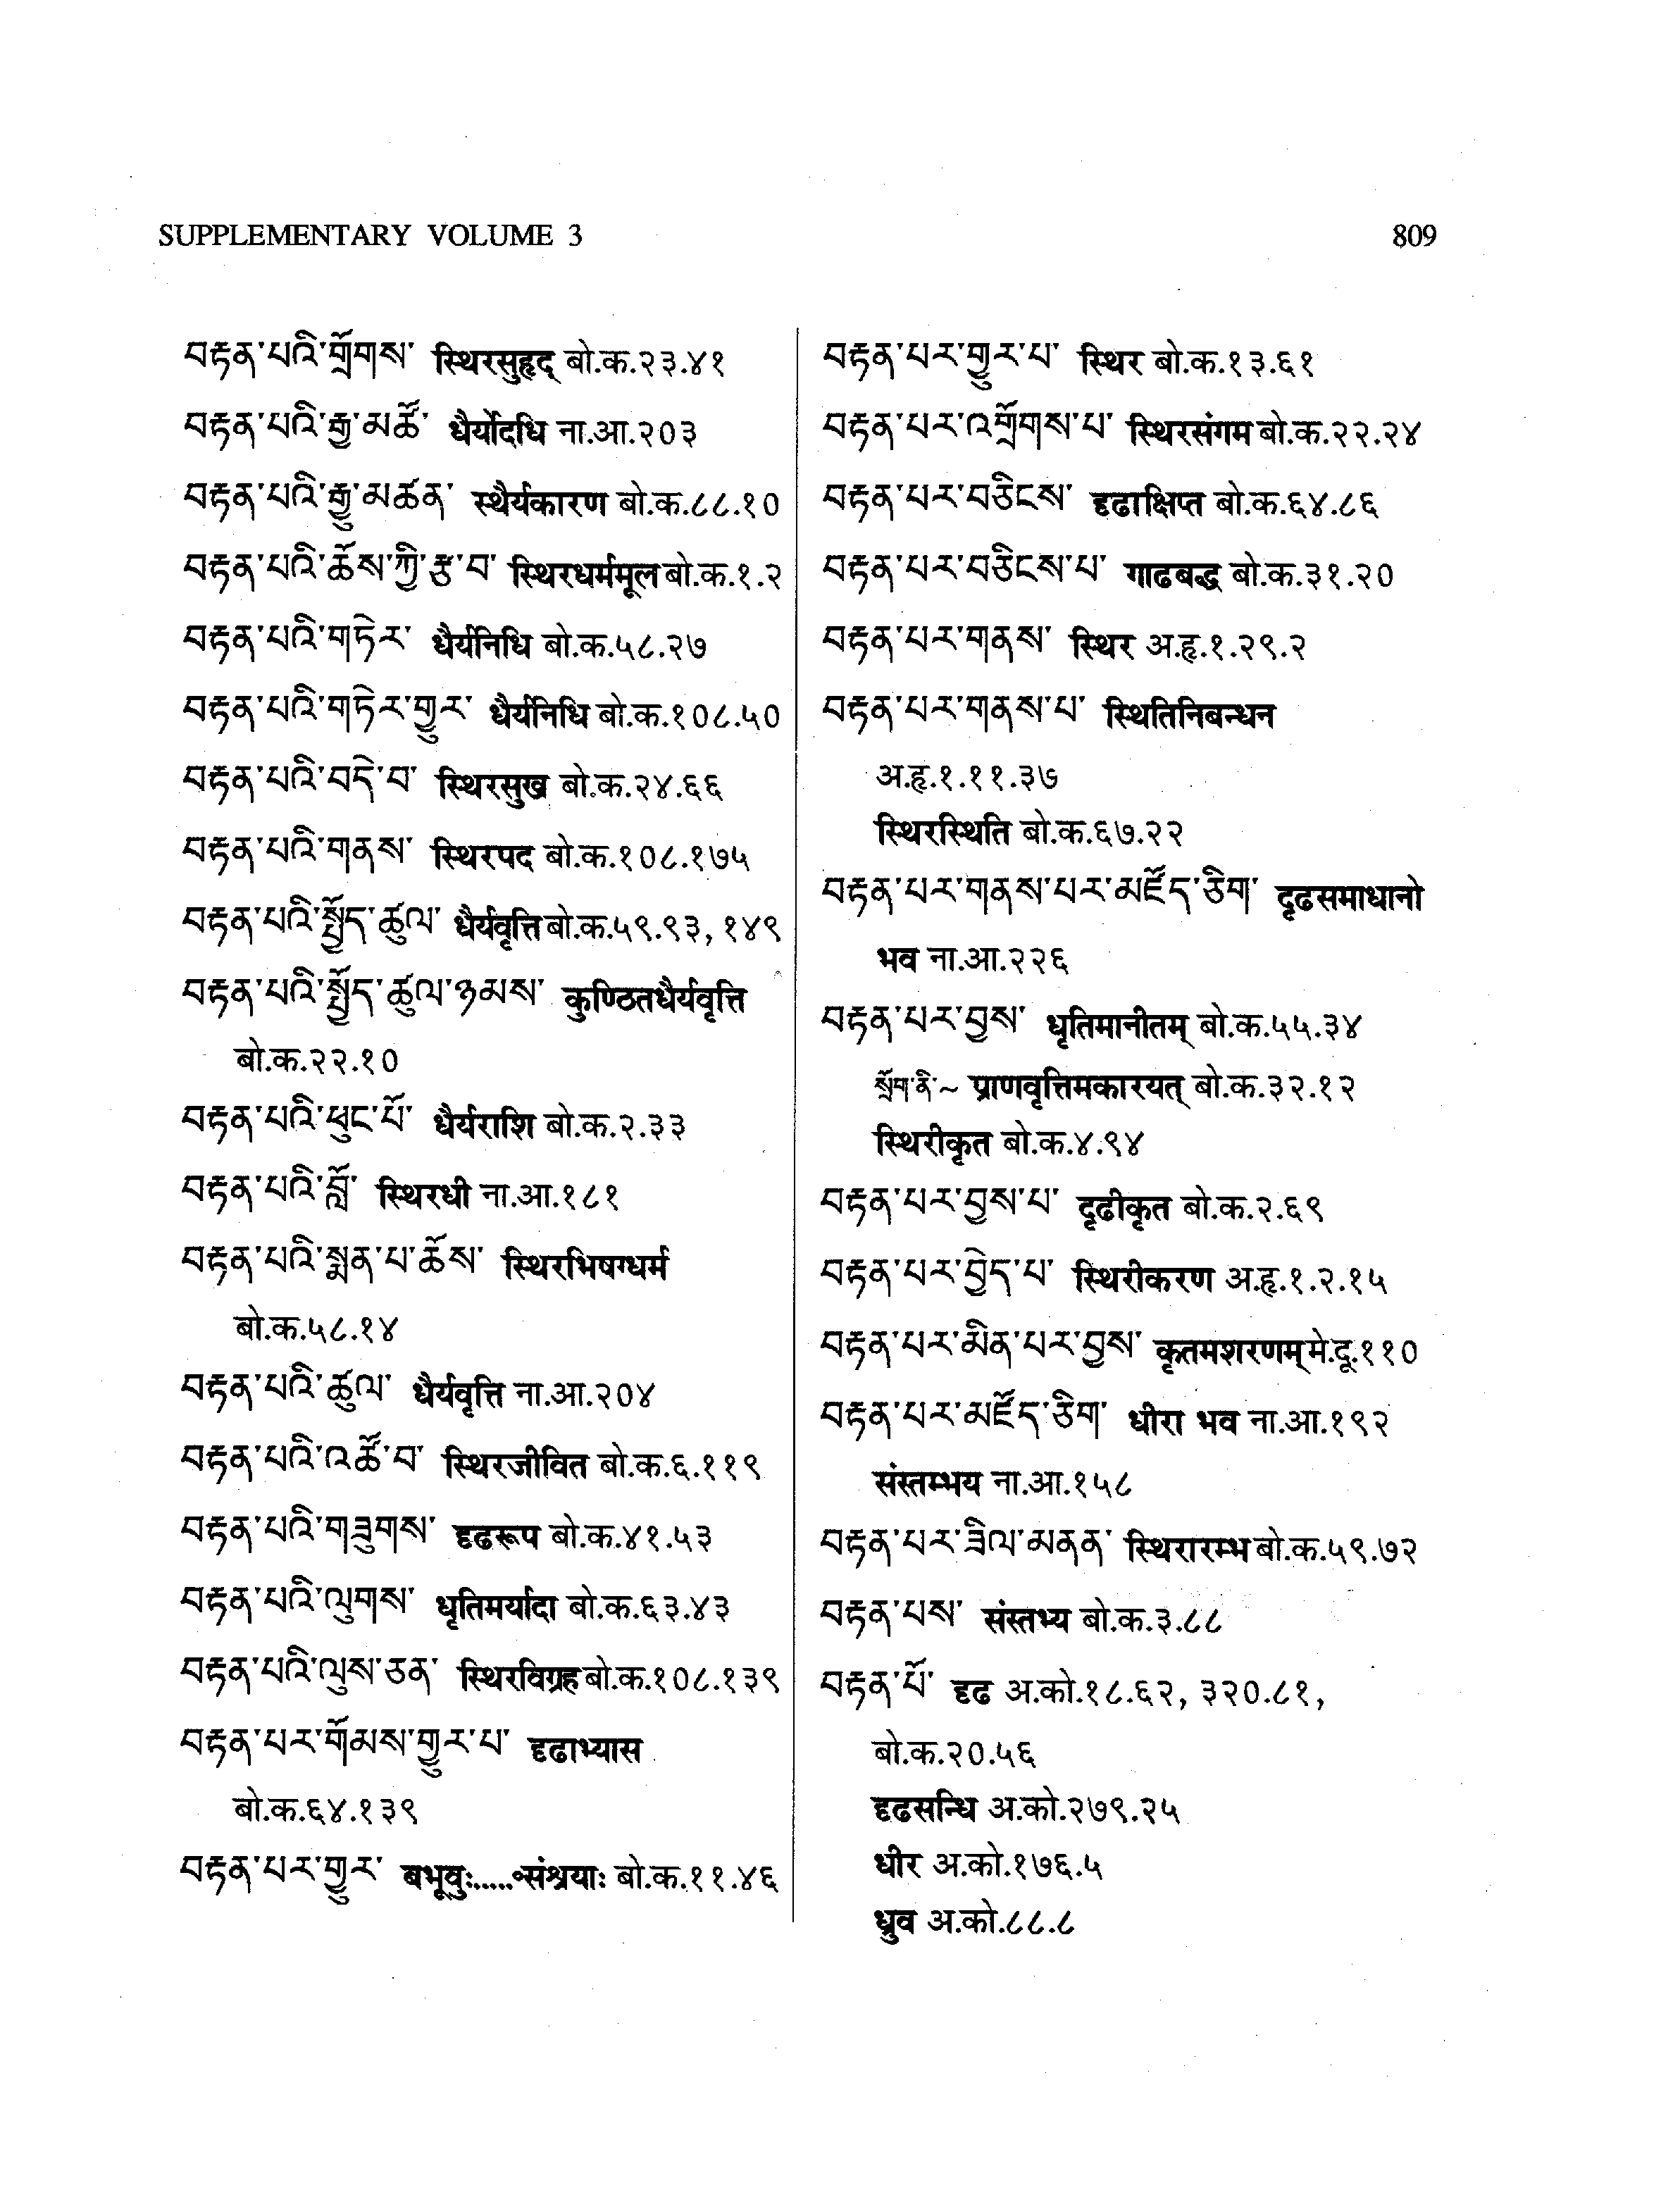 SUPPLEMENTARY VOLUME 3
809
བརྟན་པའི་གྲོགས་ स्थिरसुहृद् बो.क.२३.४१
བརྟན་པའི་རྒྱ་མཚོ་ धैर्योदधि ना.आ.२०३
བརྟན་པའི་རྒྱུ་མཚན་ स्थैर्यकारण बो.क.८८.१०
བརྟན་པའི་ཆོས་ཀྱི་རྩ་བ་ स्थिरधर्ममूल बो.क.१.२
བརྟན་པའི་གཏེར་ धैर्यनिधि बो.क.५८.२७
བརྟན་པའི་གཏེར་གྱུར་ धैर्यनिधि बो.क.१०८.५०
བརྟན་པའི་བདེ་བ་ स्थिरसुख बो.क.२४.६६
བརྟན་པའི་གནས་ स्थिरपद बो.क.१०८.१७५
བརྟན་པའི་སྤྱོད་ཚུལ་ धैर्यवृत्ति बो.क.५९.९३, १४९
བརྟན་པའི་སྤྱོད་ཚུལ་ཉམས་ कुण्ठितधैर्यवृत्ति
बो.क.२२.१०
བརྟན་པའི་ཕུང་པོ་ धैर्यराशि बो.क.२.३३
བརྟན་པའི་བློ་ स्थिरधी ना.आ.१८१
བརྟན་པའི་སྨན་པ་ཆོས་ स्थिरभिषग्धर्म
बो.क.५८.१४
བརྟན་པའི་ཚུལ་ धैर्यवृत्ति ना.आ.२०४
བརྟན་པའི་འཚོ་བ་ स्थिरजीवित बो.क.६.११९
བརྟན་པའི་གཟུགས་ दृढरूप बो.क.४१.५३
བརྟན་པའི་ལུགས་ धृतिमर्यादा बो.क.६३.४३
བརྟན་པའི་ལུས་ཅན་ स्थिरविग्रह बो.क.१०८.१३९
བརྟན་པར་གོམས་གྱུར་པ་ दृढाभ्यास
बो.क.६४.१३९
བརྟན་པར་གྱུར་ बभूवुः.....॰संश्रयाः बो.क.११.४६
བརྟན་པར་གྱུར་པ་ स्थिर बो.क.१३.६१
བརྟན་པར་འགྲོགས་པ་ स्थिरसंगम बो.क.२२.२४
བརྟན་པར་བཅིངས་ दृढाक्षिप्त बो.क.६४.८६
བརྟན་པར་བཅིངས་པ་ गाढबद्ध बो.क.३१.२०
བརྟན་པར་གནས་ स्थिर अ.हृ.१.२९.२
བརྟན་པར་གནས་པ་ स्थितिनिबन्धन
अ.हृ.१.११.३७
स्थिरस्थिति बो.क.६७.२२
བརྟན་པར་གནས་པར་མཛོད་ཅིག་ दृढसमाधानो
भव ना.आ.२२६
བརྟན་པར་བྱས་ धृतिमानीतम् बो.क.५५.३४
སྲོག་ནི་~ प्राणवृत्तिमकारयत् बो.क.३२.१२
स्थिरीकृत बो.क.४.९४
བརྟན་པར་བྱས་པ་ दृढीकृत बो.क.२.६९
བརྟན་པར་བྱེད་པ་ स्थिरीकरण अ.हृ.१.२.१५
བརྟན་པར་མིན་པར་བྱས་ कृतमशरणम् मे.दू.११०
བརྟན་པར་མཛོད་ཅིག་ धीरा भव ना.आ.१९२
संस्तम्भय ना.आ.१५८
བརྟན་པར་ཟིལ་མནན་ स्थिरारम्भ बो.क.५९.७२
བརྟན་པས་ संस्तभ्य बो.क.३.८८
བརྟན་པོ་ दृढ अ.को.१८.६२, ३२०.८१,
बो.क.२०.५६
दृढसन्धि अ.को.२७९.२५
धीर अ.को.१७६.५
ध्रुव अ.को.८८.८